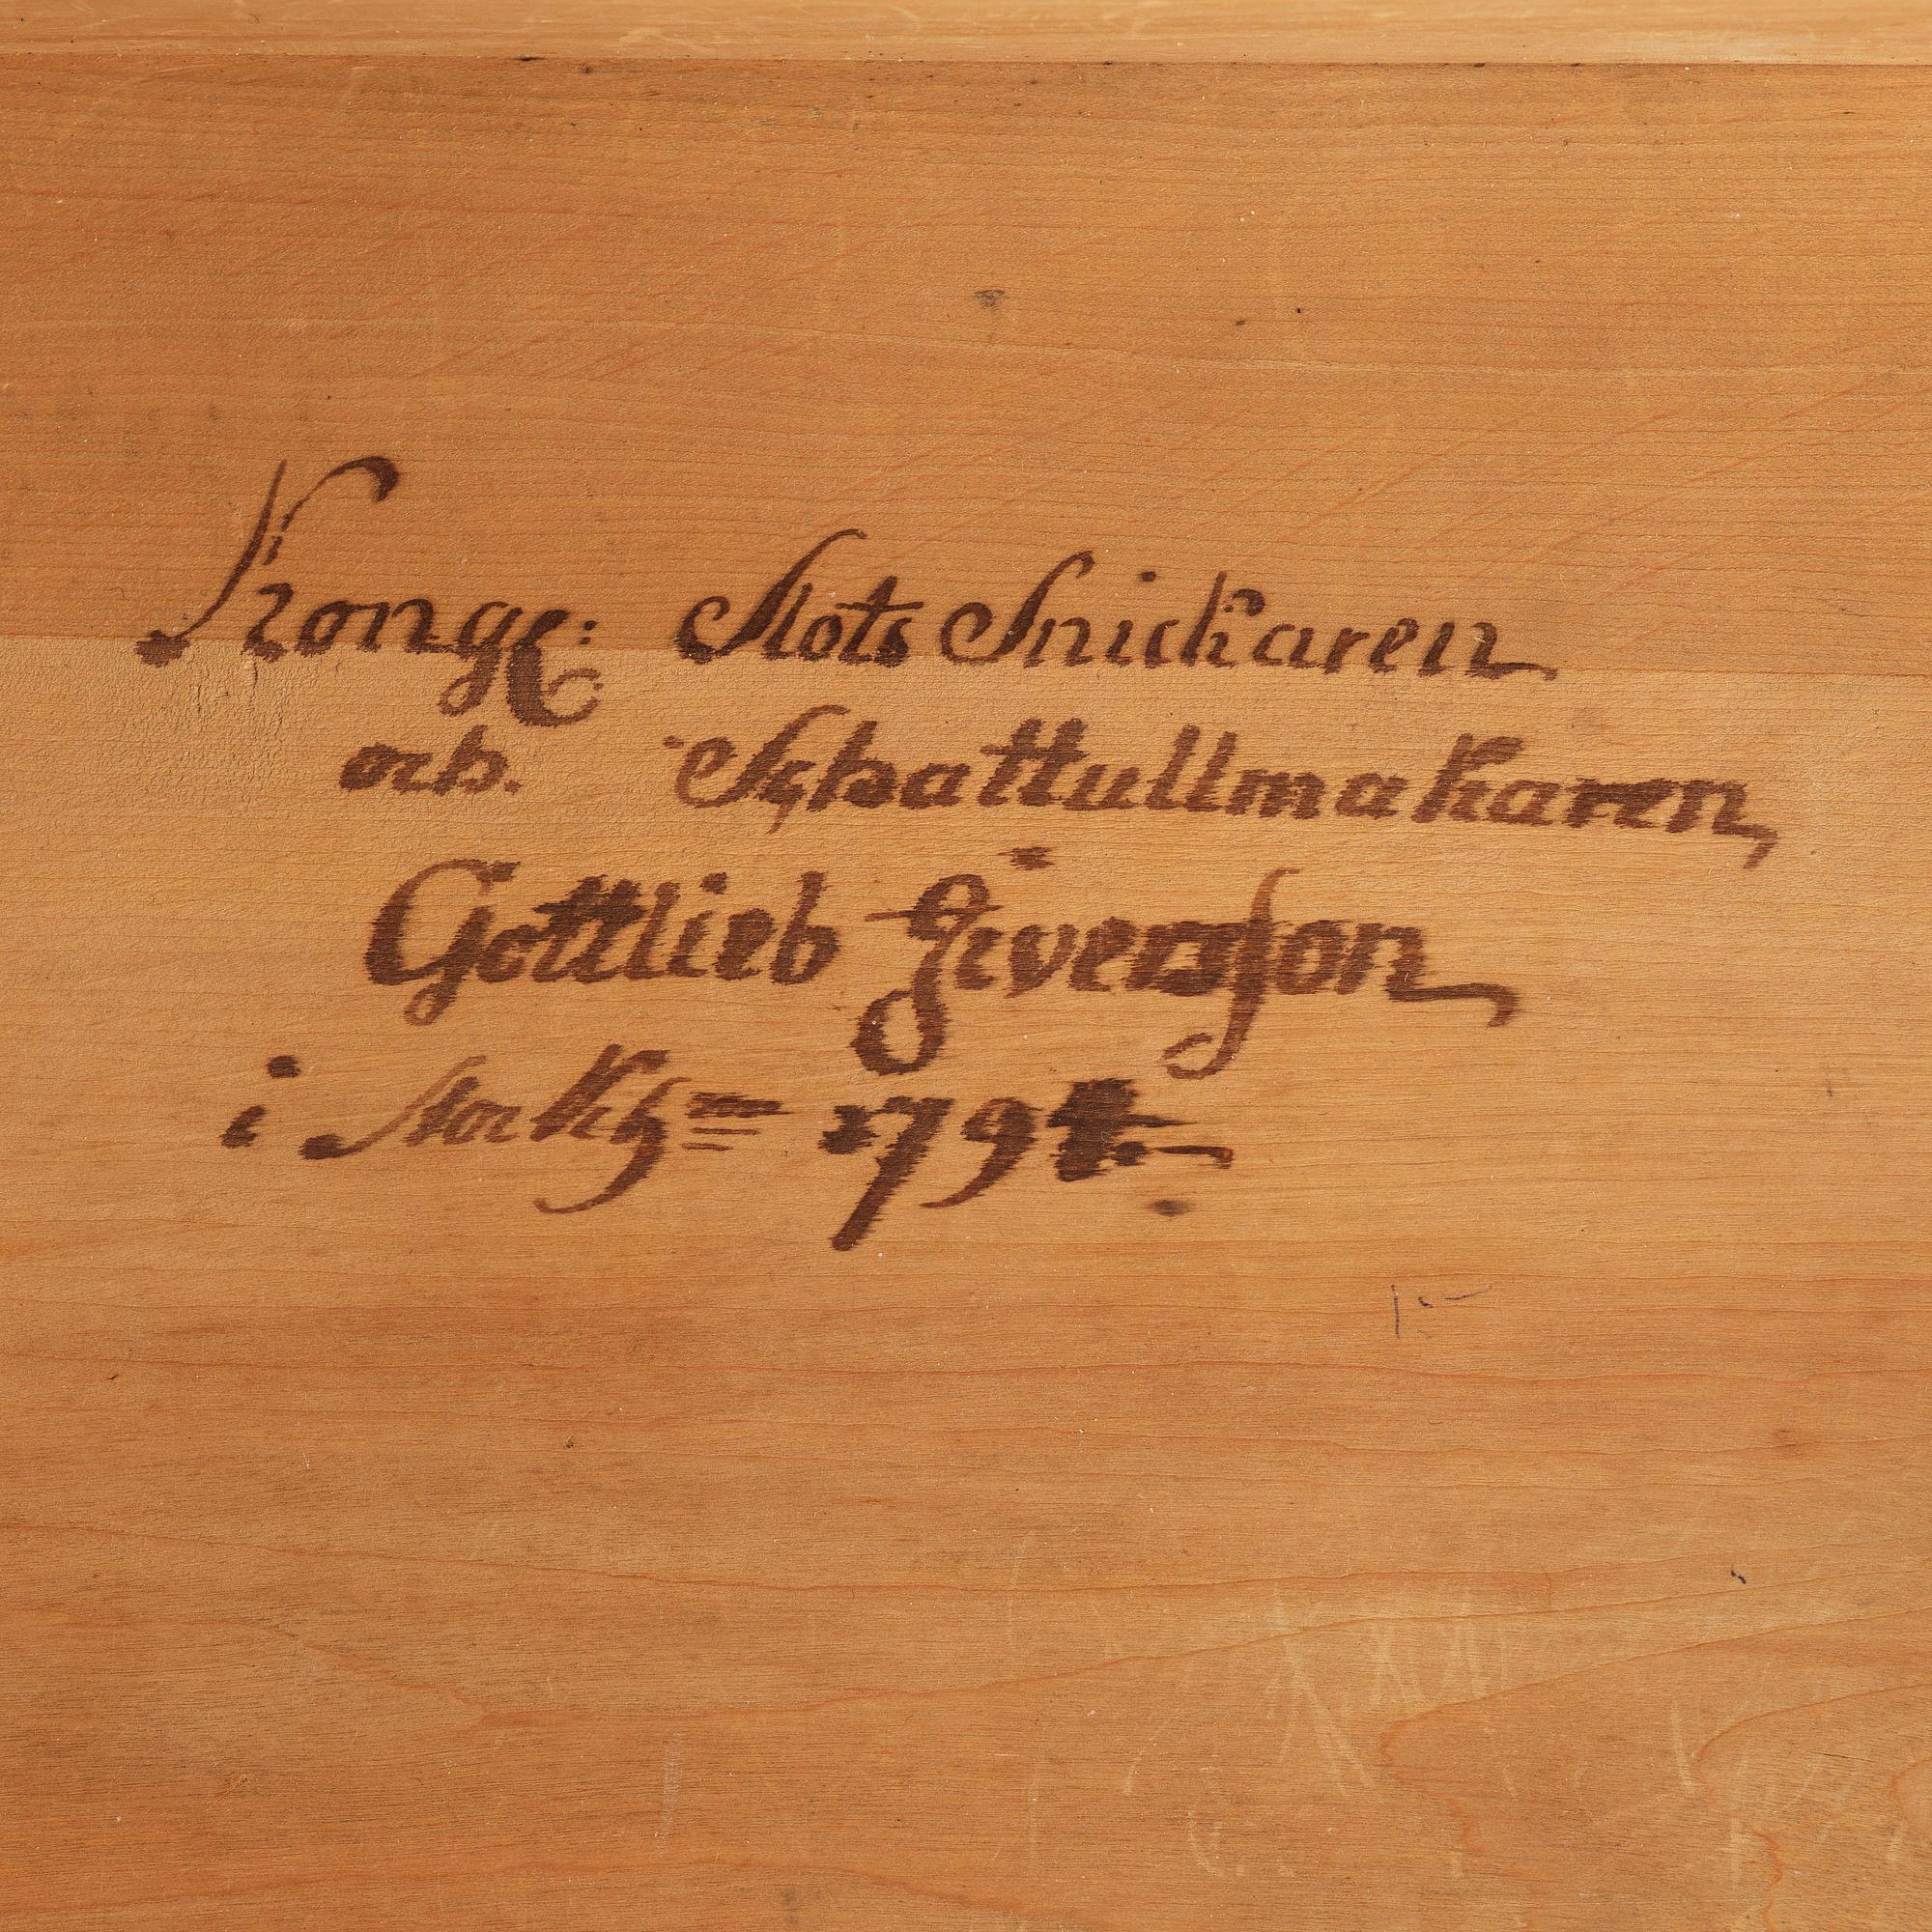 Konge: Slots Snickaren
och. Schattullmakaren,
Gottlieb Iversson
i Stockh= 1794.